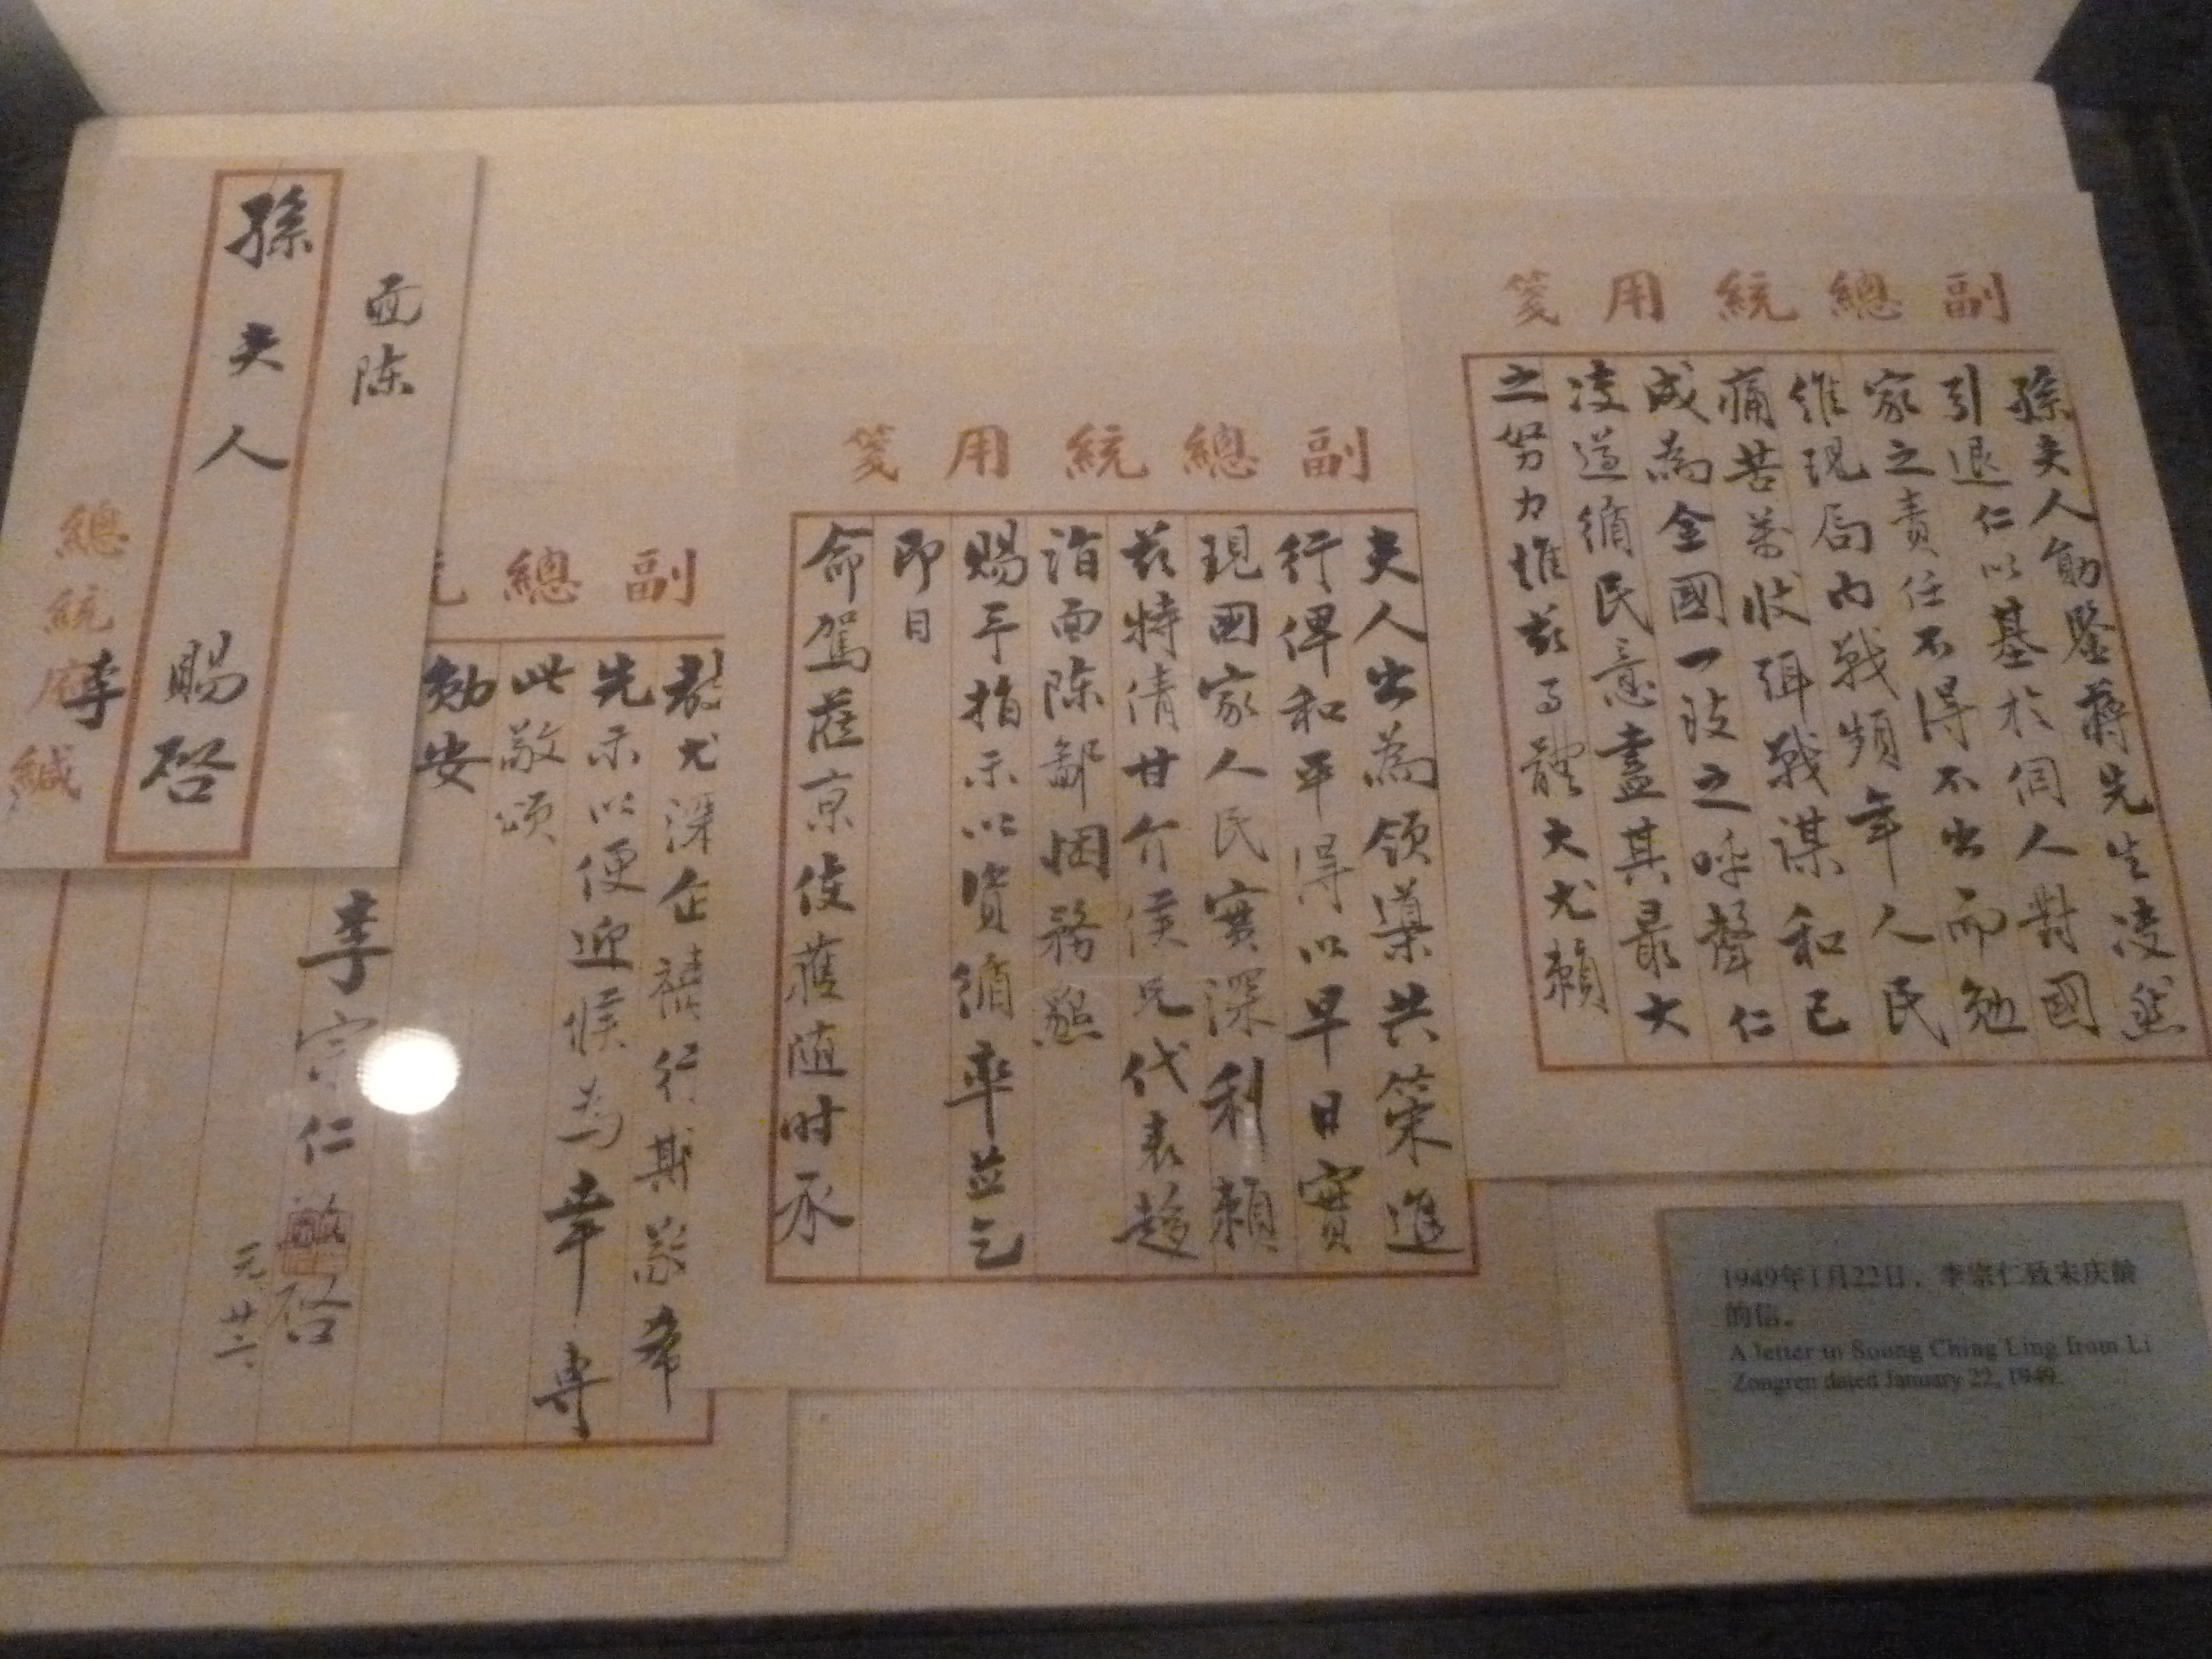 副總統用箋
孫夫人勛鑒蔣先生凌然
引退仁以基於同人對國
家之責任不得不出而勉
維現局內戰頻年人民
痛苦萬狀弭戰謀和已
成為全國一致之呼聲仁
凌遵循民意盡其最大
之努力惟茲事體大尤賴
副總統用箋
夫人出為領導共策進
行俾和平得以早日實
現國家人民實深利賴
茲特倩甘介侯兄代表趨
詣面陳鄙悃務懇
賜予指示以資循率並乞
即日
命駕蒞京伎蒦随时承
副總
尤深企禱行斯懇希
先示以便迎候為幸專
此敬頌
勛安
李宗仁敬啓
元廿二
面陳
孫夫人 賜啓
總統府李緘
1949年1月22日，李宗仁致宋庆龄
的信。
A letter to Soong Ching Ling from Li
Zongren dated January 22, 1949.